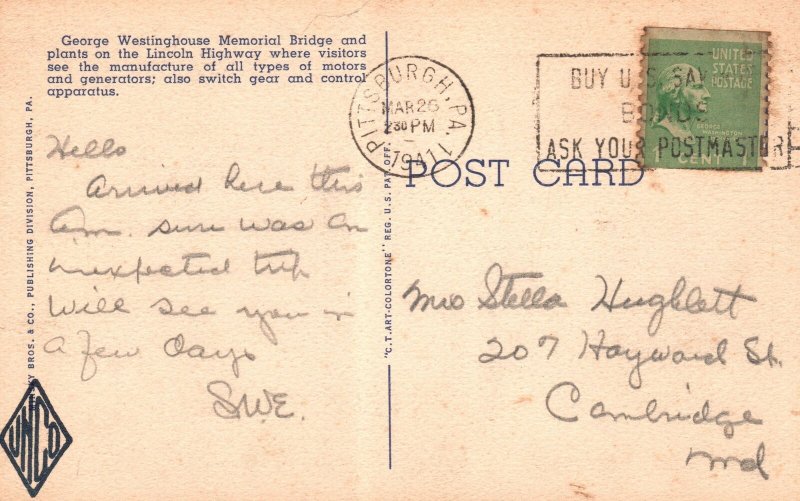 George Westinghouse Memorial Bridge and
plants on the Lincoln Highway where visitors
see the manufacture of all types of motors
and generators; also switch gear and control
apparatus.
PITTSBURGH, PA. 1
MAR 26
2 30 PM
1941
BUY U.S. SAV
BONDS
ASK YOUR POSTMASTER
UNITED
STATES
POSTAGE
GEORGE
WASHINGTON
1 CENT 1
POST CARD
Hello
Arrived here this
A.m. sure was an
unexpected trip
Will see you in
a few days
S.W.E.
Mrs Stella Hughlett
207 Hayward St.
Cambridge
Md
BROS. & CO., PUBLISHING DIVISION, PITTSBURGH, PA.
"C.T. ART-COLORTONE" REG. U.S. PAT. OFF.
UNCO